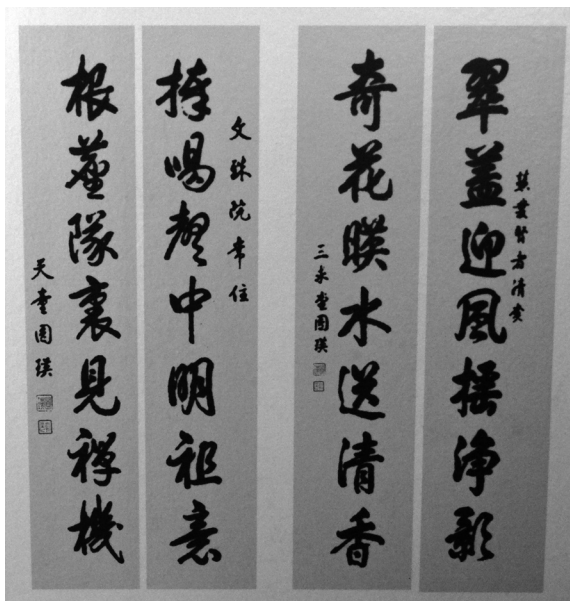 翠葢迎風搖淨影
賢者清賞
奇花暎水送清香
三求堂圓瑛
棒喝聲中明祖意
文殊院常住
根塵隊裏見禪機
天童圓瑛